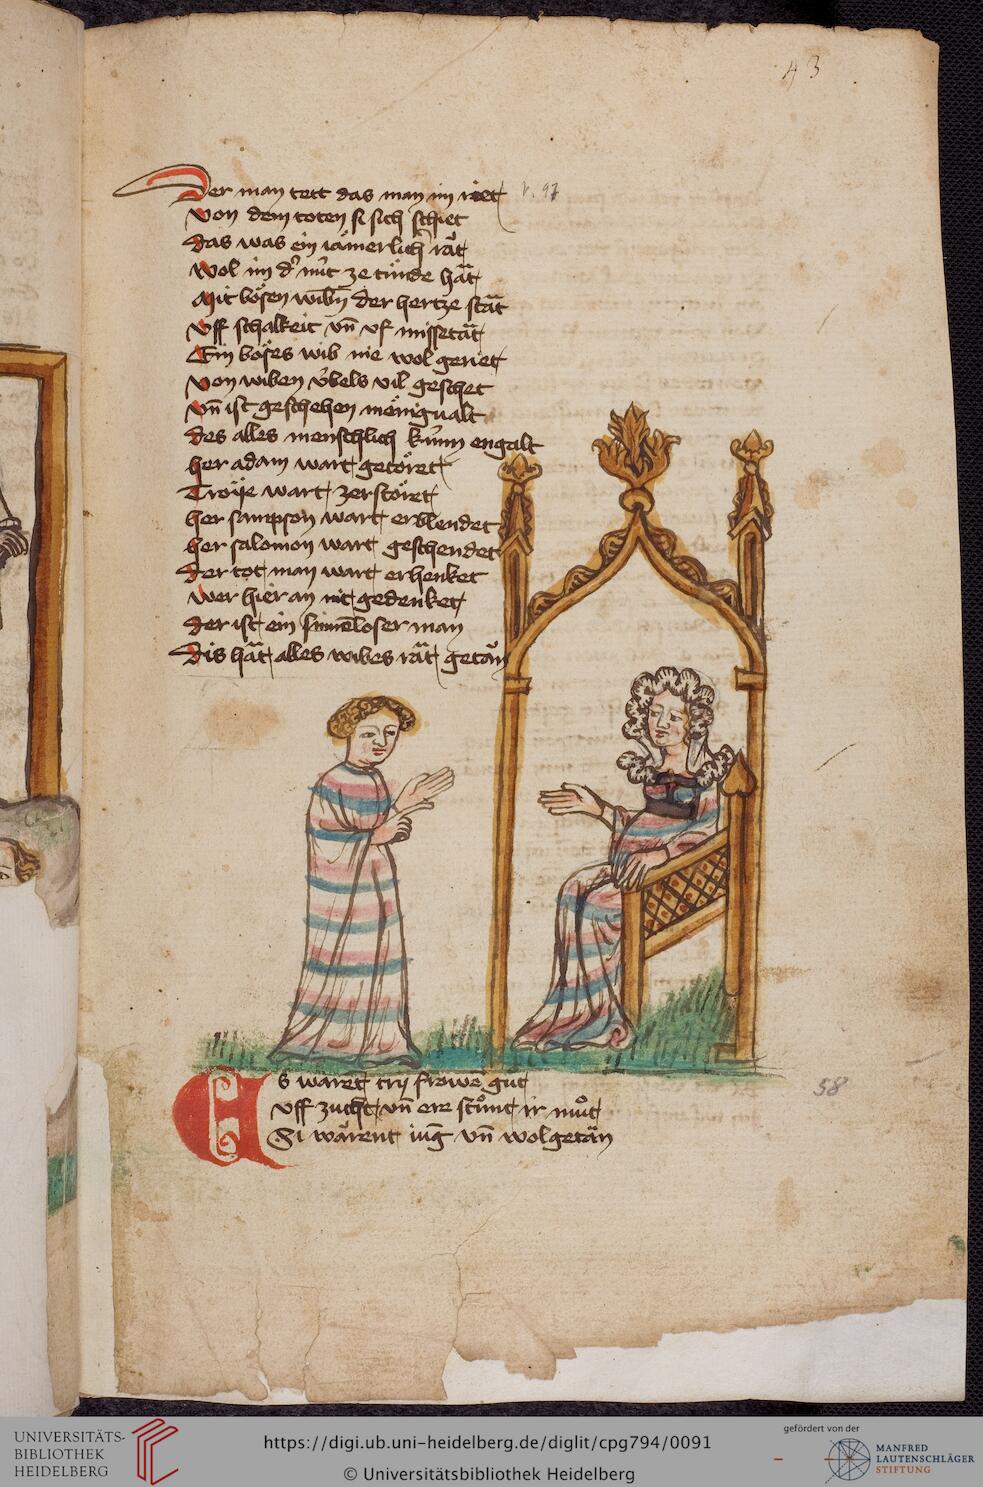 43
Der man tett das man im riet v. 97
von dem toten si sich schiet
das was ein iämerlich rät
wol im dˀ nüt ze tünde hät
Mit bösen wibn̄ der hertze stät
vff schalkeit vn̄ vf missetät
Ein böses wib nie wol geriet
von wiben v̊bels vil geschet
vn̄ ist geschehen mënigualt
des alles menschlich künn engalt
her adam wart getöret
Troÿe wart zerstöret
her sampson wart erblendet
her salomon wart geschendet
der tot man wart erhenket
wer hier an nit gedenket
der ist ein sinnēloser man
dis hät alles wibes rät getän
Es waret trij frowē gut
vff zucht vn̄ ere stůnt ir můt
58
Si wärent iuḡ vn̄ wolgetän
UNIVERSITÄTS-
BIBLIOTHEK
HEIDELBERG
https://digi.ub.uni-heidelberg.de/diglit/cpg794/0091
© Universitätsbibliothek Heidelberg
gefördert von der
MANFRED
LAUTENSCHLÄGER
STIFTUNG